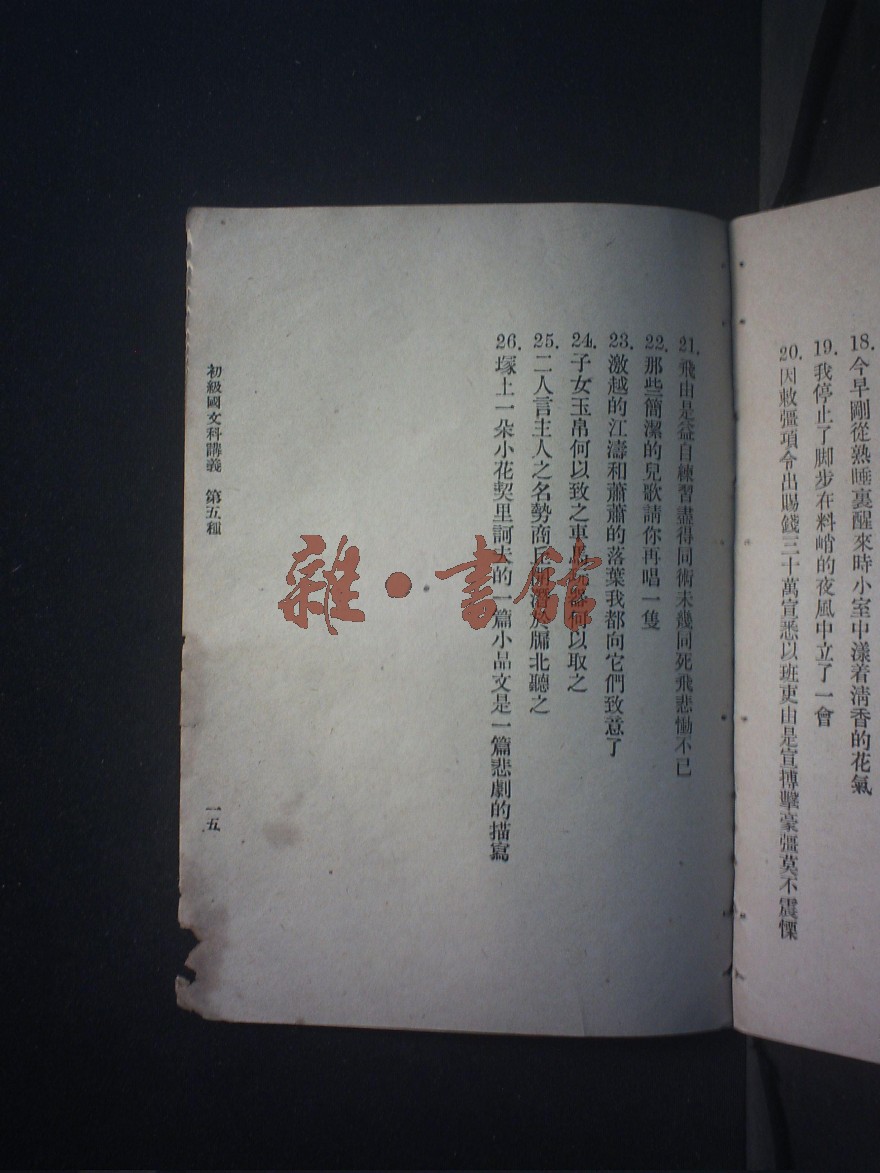 18. 今早剛從熟睡裏醒來時小室中漾着清香的花氣
19. 我停止了脚步在料峭的夜風中立了一會
20. 因敕彊項令出賜錢三十萬宣悉以班吏由是宣搏擊豪彊莫不震慄
21. 飛由是益自練習盡得同術未幾同死飛悲慟不已
22. 那些簡潔的兒歌請你再唱一隻
23. 激越的江濤和蕭蕭的落葉我都向它們致意了
24. 子女玉帛何以致之車何以取之
25. 二人言主人之名勢商於牖北聽之
26. 塚上一朵小花契里訶夫的一篇小品文是一篇悲劇的描寫
初級國文科講義 第五種
一五
雜·書館